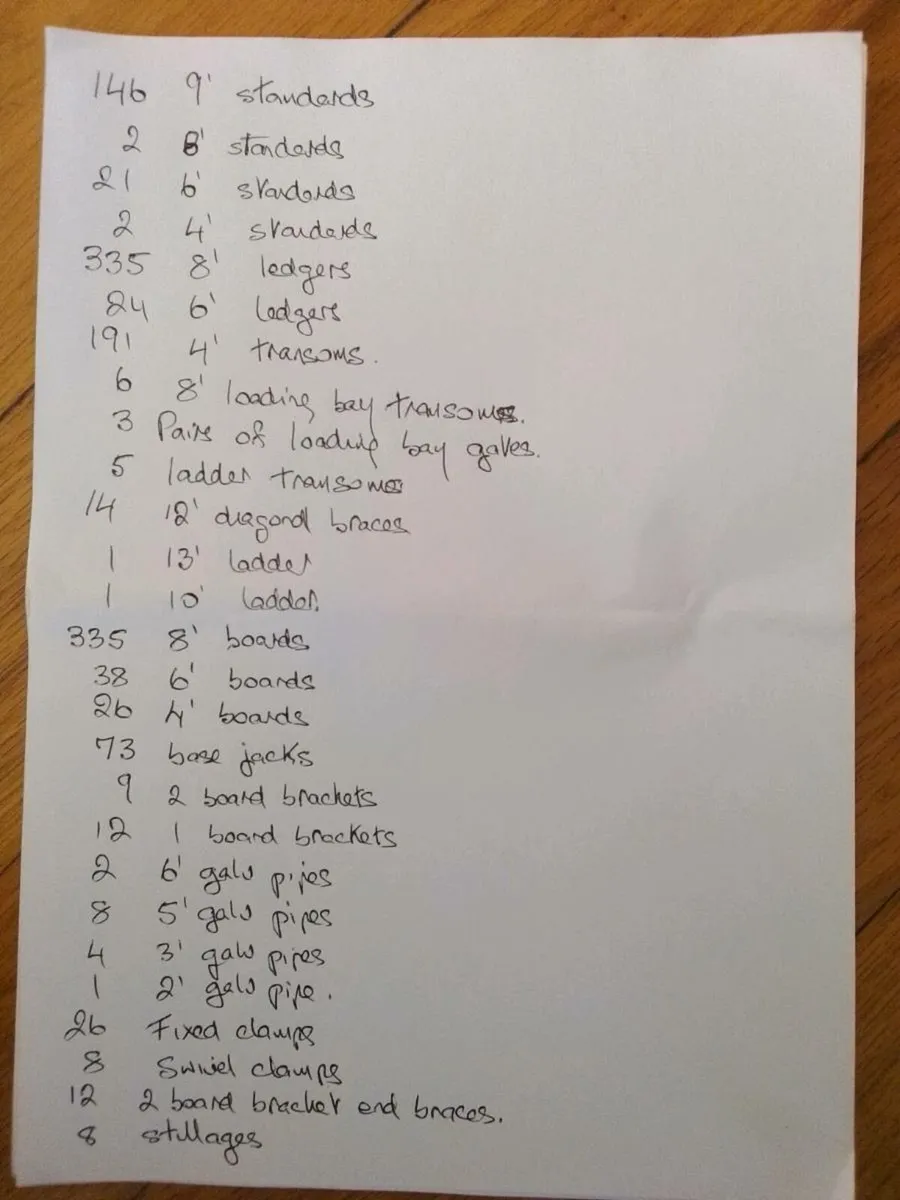 146 9' standards
2 8' standards
21 6' standards
2 4' standards
335 8' ledgers
24 6' ledgers
191 4' transoms.
6 8' loading bay transoms.
3 Pairs of loading bay gates.
5 ladder transoms
14 12' diagonal braces
1 13' ladder
1 10' ladder.
335 8' boards
38 6' boards
26 4' boards
73 base jacks
9 2 board brackets
12 1 board brackets
2 6' galv pipes
8 5' galv pipes
4 3' galv pipes
1 2' galv pipe.
26 Fixed clamps
8 Swivel clamps
12 2 board bracket end braces.
8 stillages